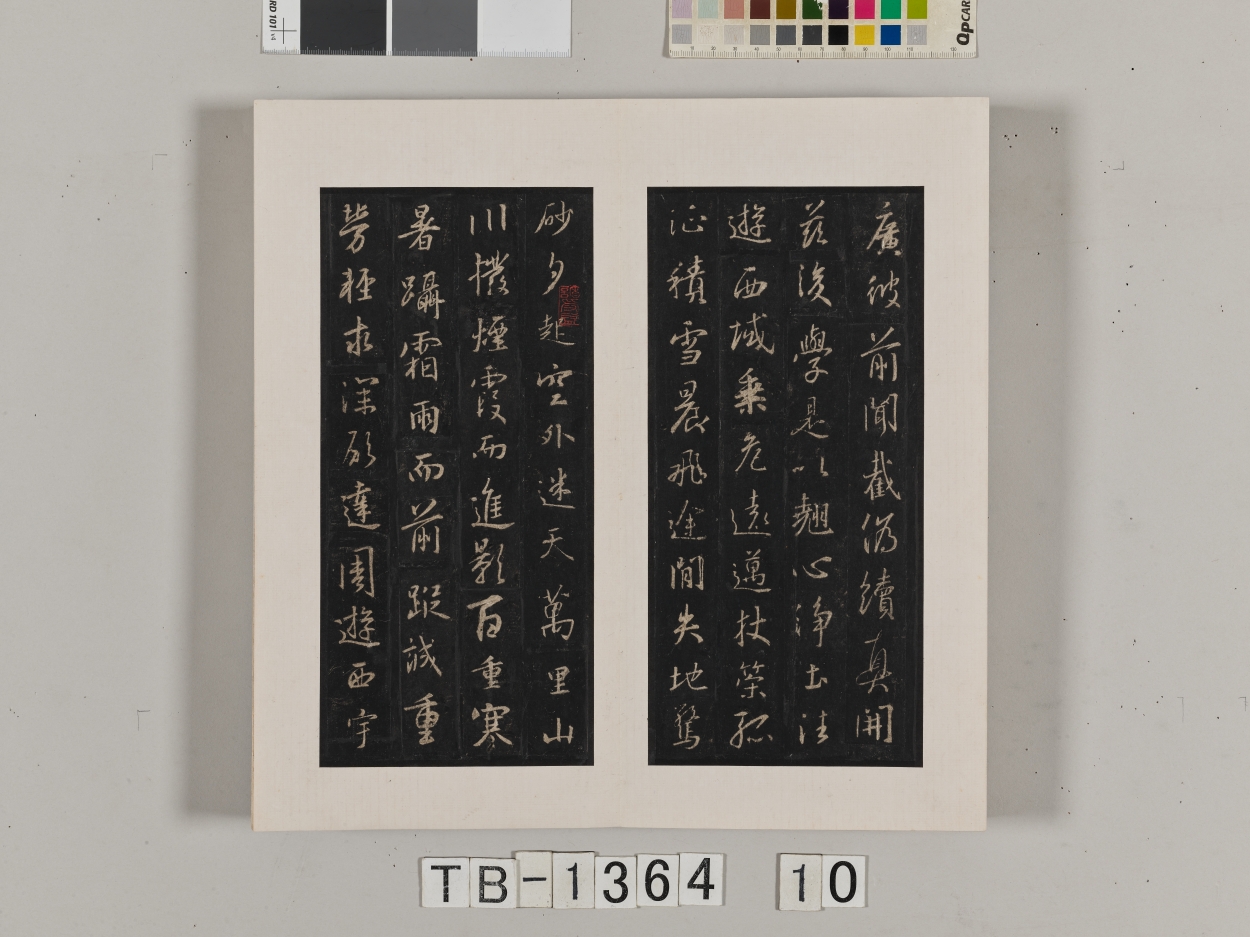 廣彼前聞截偽續真開
茲後學是以翹心淨土法
遊西域乗危遠邁杖策孤
征積雪晨飛途間失地驚
砂夕起空外迷天萬里山
川撥煙霞而進影百重寒
暑躡霜雨而前蹤誠重
勞輕求深願達周遊西宇
TB-1364 10